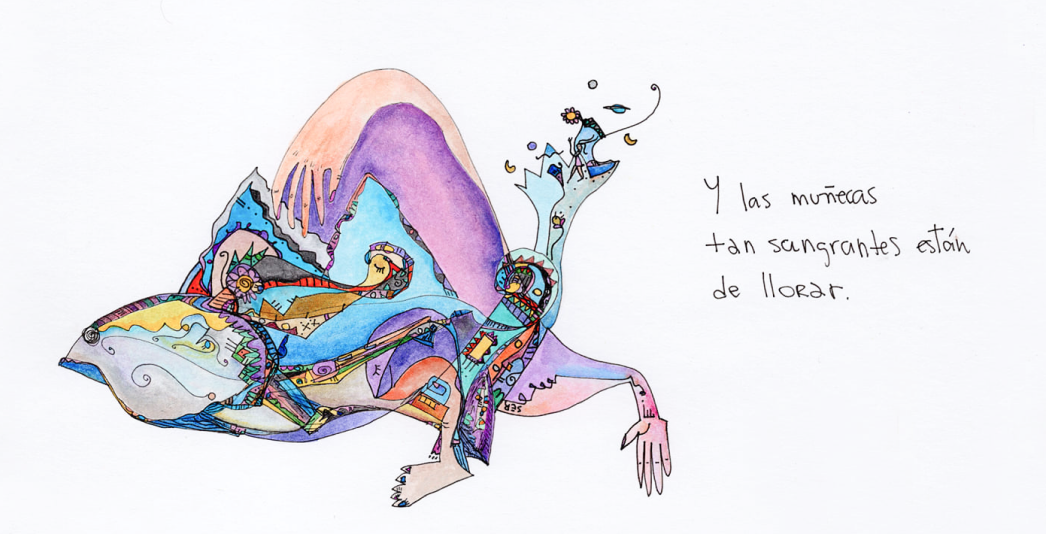 Y las muñecas
tan sangrantes están
de lloRar.
SER